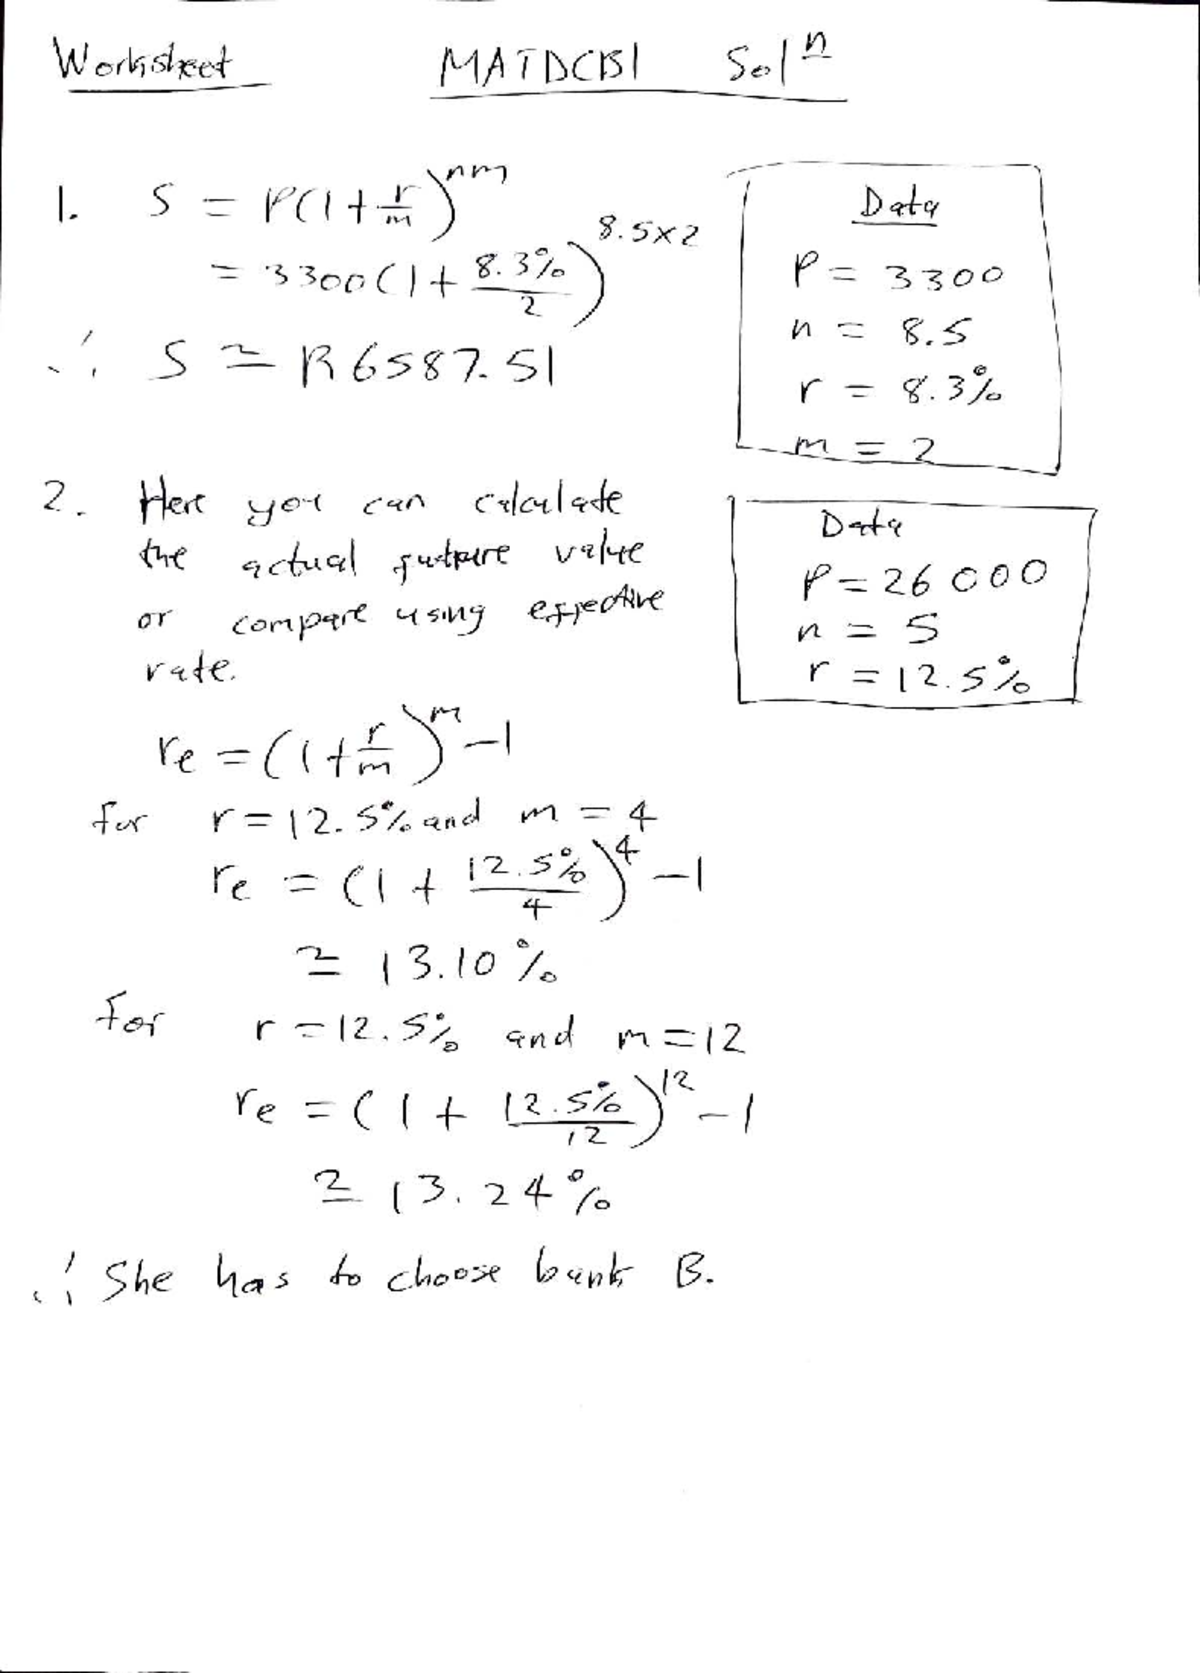 Worksheet MATDCB1 Solⁿ
1. S = P(1+r/m)^nm
= 3300(1+8.3%/2)^8.5×2
∴ S ≃ R6587.51
Data
P = 3300
n = 8.5
r = 8.3%
m = 2
2. Here you can calculate
the actual future value
or compare using effective
rate.
Data
P = 26 000
n = 5
r = 12.5%
re = (1+r/m)^m -1
for r = 12.5% and m = 4
re = (1 + 12.5%/4)^4 -1
≃ 13.10%
For r = 12.5% and m = 12
re = (1 + 12.5%/12)^12 -1
≃ 13.24%
∴ She has to choose bank B.